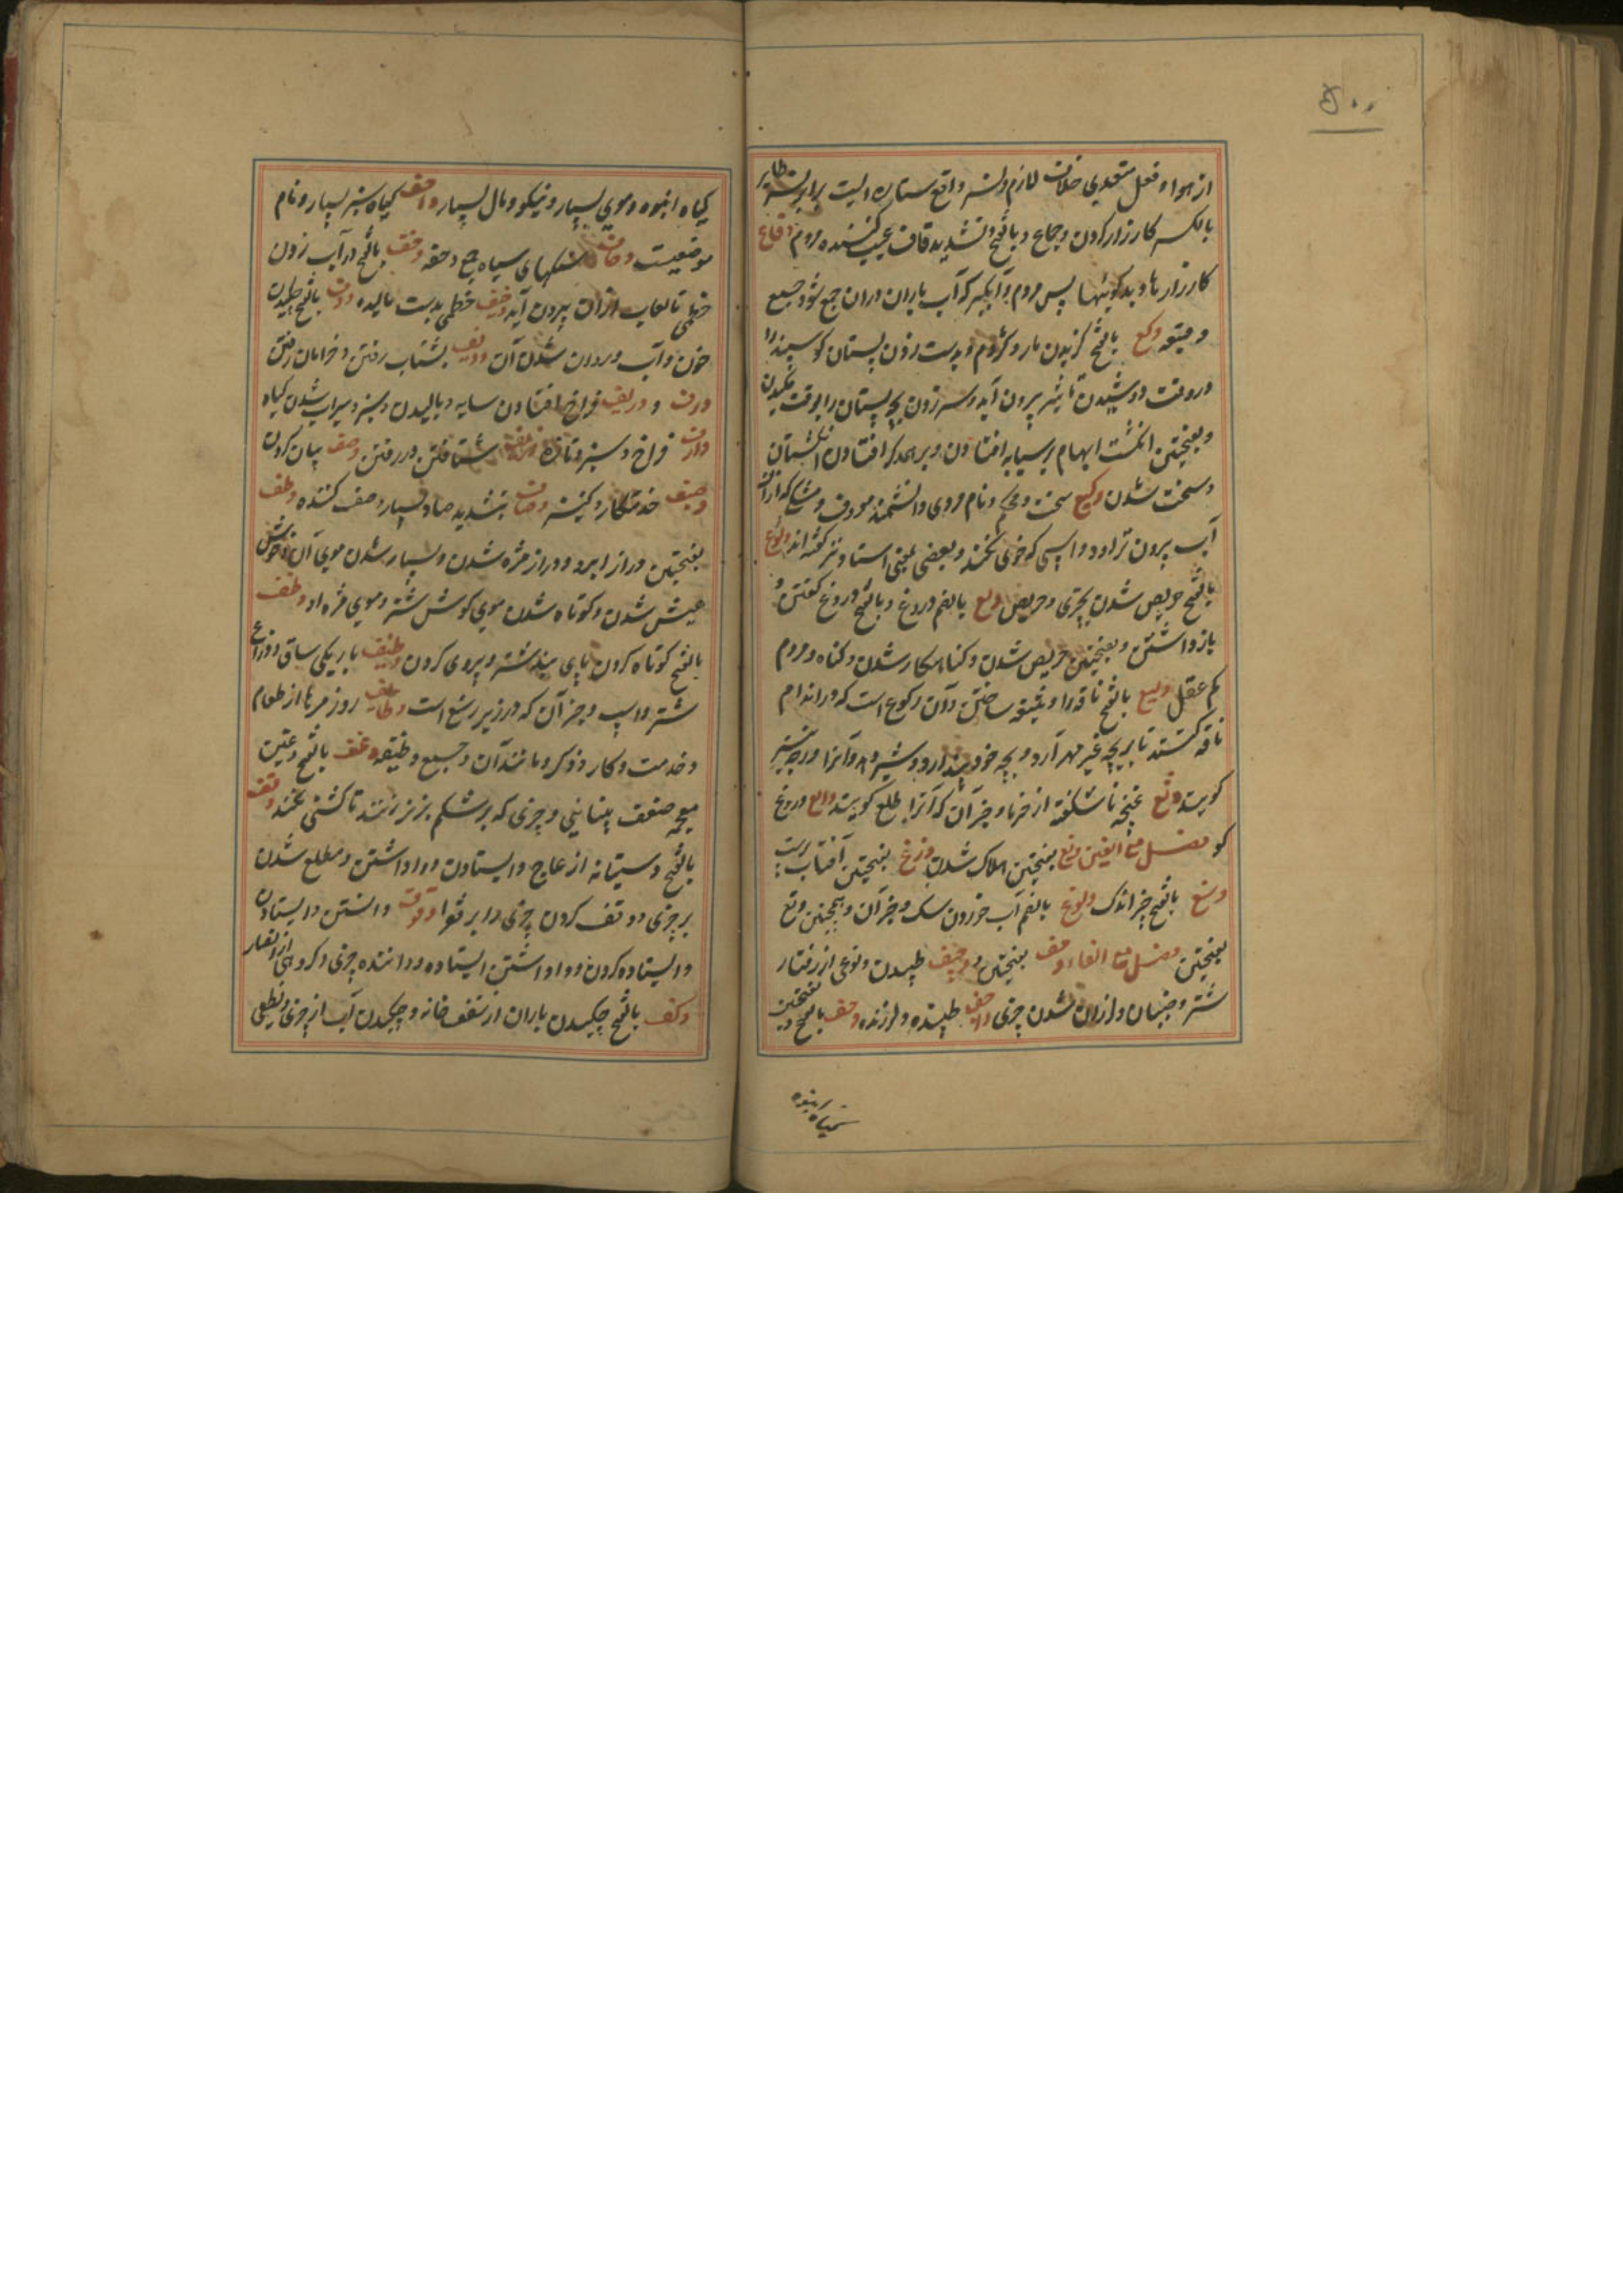 ۵۰۰
از هوا و فعل متعدی خلاف لازم و نسر واقع ستاره ایست برابر نسر طایر
بالکسر کارزار کردن و جماع و بالفتح و تشدید قاف عیب کننده مردم وقاع
کارزارها و بدکوئیها پس مردم و آبگیر که آب باران دران جمع شود جمع
وقیعه وکع بالفتح کزیدن مار و کژدم و بدست زدن پستان کوسپند را
در وقت دوشیدن تا شیر بیرون آید و سر زدن بچه پستان را بوقت مکیدن
و بفتحتین انکشت ابهام بر سبابه افتادن و بر همدکر افتادن انکشتان
و سخت شدن وکیع سخت و محکم و نام مردی دانشمند معروف و مشک که ازان
آب بیرون تراود و اسپی که خوی نکند و بعضی بمعنی استاد نیز کفته اند ولوع
بالفتح حریص شدن بچیزی و حریص ولع بالضم دروغ و بالفتح دروغ کفتن و
بازداشتن و بفتحتین حریص شدن و کناهکار شدن و کناه و مردم
کم عقل ولیع بالفتح ناقه را
ناقه کنند تا بر بچه غیر مهر آرد و بچه خود پندارد و شیر دهد و آنرا
کویند وليع غنچه ناشکفته از خرما و جز آن که آنرا طلع کویند والع دروغ
کو فصل مع الغین وتغ بفتحتین هلاک شدن وزغ بفتحتین آفتاب پرست
وشغ بالفتح چیز اندک ولوغ بالضم آب خوردن سک و جز آن و همچنین ولغ
بفتحتین فصل مع الفاء وجف بفتحتین و وجیف طپیدن و نوعی از رفتار
شتر و جنبان و لرزان شدن چیزی واجف طپنده و لرزنده وحف بالفتح و بفتحتین
کیاه انبوه
کیاه انبوه و موی بسیار و نیکو و مال بسیار واحف کیاه سبز بسیار و نام
موضعیست وحاف سنکهای سیاه جمع وحفه وخف بالفتح در آب زدن
خطمی تا لعاب ازان بیرون آید وخیف خطمی بدست مالیده ودف بالفتح چکیدن
خون و آب و روان شدن آن وذیف بشتاب رفتن و خرامان رفتن
ورف و وریف فراخ افتادن سایه و بالیدن و سبز و سیراب شدن کیاه
وارف فراخ و سبز و تازه وزف شتافتن در رفتن وصف بیان کردن
وصیف خدمتکار و کنیز وصاف بتشدید صاد بسیار وصف کننده وطف
بفتحتین دراز ابرو و دراز مژه شدن و بسیار شدن موی آن و خوش
عیش شدن و کوتاه شدن موی کوش شتر و موی مژه او وظف
بالفتح کوتاه کردن پای بند شتر و پیروی کردن وظیف باریکی ساق و ذراع
شتر و اسپ و جز آن که در زیر رسغ است وظایف روز مره از طعام
و خدمت و کار و ذکر و مانند آن و جمع وظیفه وغف بالفتح و غین
معجمه ضعف بینایی و چیزی که بر شکم بز بندند تا کشنی نکند وقف
بالفتح دستیانه از عاج و ایستادن و واداشتن و مطلع شدن
بر چیزی و وقف کردن چیزی را بر فقرا وقوف دانستن و ایستادن
و ایستاده کردن و واداشتن ایستاده و داننده چیزی و کروهی از انصار
وکف بالفتح چکیدن باران از سقف خانه و چکیدن آب از چیزی و نطعی